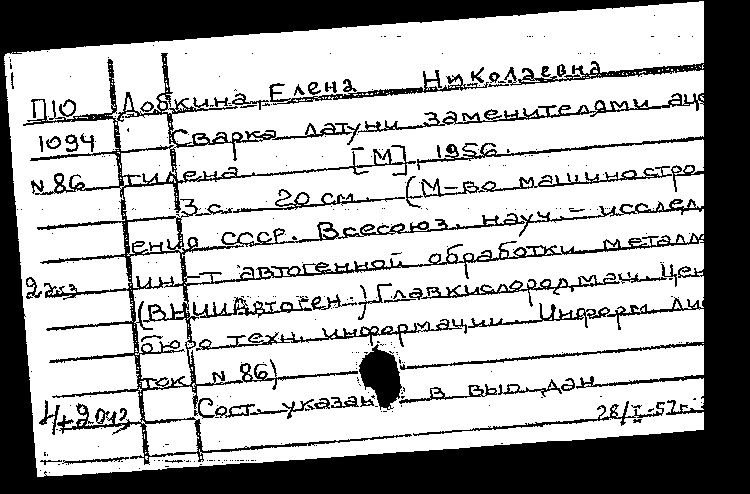 П10 Добкина, Елена Николаевна
1094 Сварка латуни заменителями аце
N 86 тилена. [М], 1956.
3 с. 20 см. (М-во машиностро
ения СССР. Всесоюз. науч.-исслед.
2 экз ин-т автогенной обработки металло
(ВНИИАвтоген.) Главкислородмаш. Цен
бюро техн. информации. Информ. лис
ток N 86)
Сост. указан в вып. дан
28/I-57г.